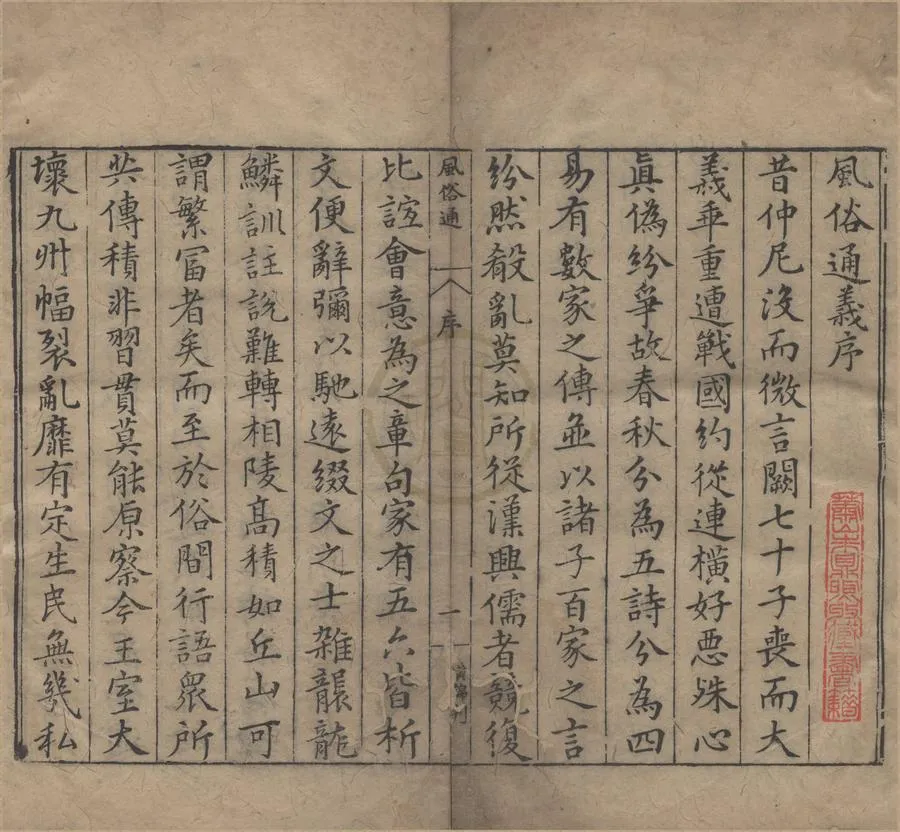 風俗通義序
昔仲尼沒而微言闕七十子喪而大
義乖重遭戰國約從連橫好惡殊心
眞偽紛爭故春秋分為五詩分為四
易有數家之傳並以諸子百家之言
紛然殽亂莫知所從漢興儒者競復
風俗通 序 一
比誼會意為之章句家有五六皆析
文便辭彌以馳遠綴文之士雜襲龍
鱗訓註說難轉相陵高積如丘山可
謂繁富者矣而至於俗間行語眾所
共傳積非習貫莫能原察今王室大
壞九州幅裂亂靡有定生民無幾私